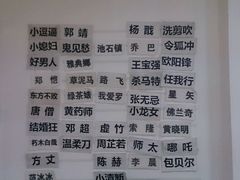 小逗逼 郭靖 杨戬 洗剪吹
小媳妇 鬼见愁 池石镇 乔巴 令狐冲
好男人 雅典娜 王宝强 欧阳锋
郑恺 草泥马 路飞 杀马特 任我行
东方不败 绿茶婊 我爱罗 张无忌 星矢
唐僧 黄药师 小龙女 佛兰奇
结婚狂 邓超 虚竹 索隆 黄晓明
朽木白哉 温柔刀 周芷若 师太 哪吒
方丈 陈赫 李晨 包贝尔
范冰冰 小清新